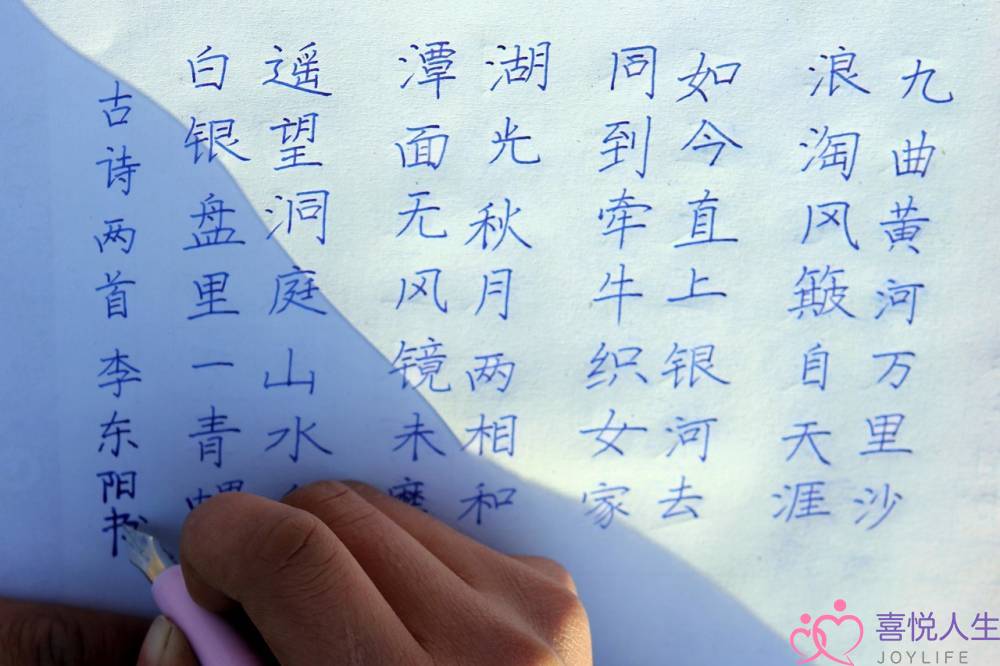 九曲黄河万里沙
浪淘风簸自天涯
如今直上银河去
同到牵牛织女家
湖光秋月两相和
潭面无风镜未磨
遥望洞庭山水
白银盘里一青螺
古诗两首李东阳书
喜悦人生
JOYLIFE